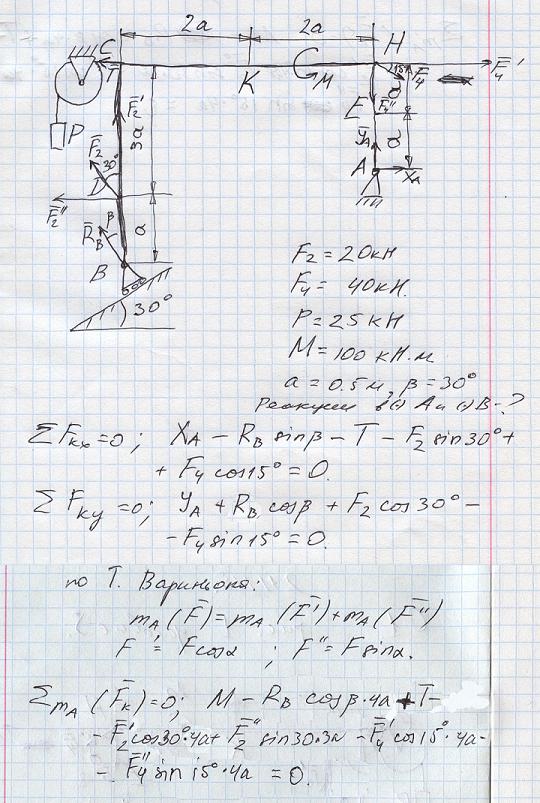 2a 2a
C H
T̄ K M 15° F̄₄ F̄₄'
F̄₂' 3a a
P E F̄₄''
F̄₂ 30° ȳ_A a
D A X_A
F̄₂''
R̄_B β a
B
30°
F₂ = 20кН
F₄ = 40кН.
P = 25 кН
M = 100 кН·м
a = 0.5м, β = 30°
Реакции в (·) A и (·) B - ?
ΣF_kx = 0; X_A − R_B sinβ − T − F₂ sin30° +
+ F₄ cos15° = 0.
ΣF_ky = 0; Y_A + R_B cosβ + F₂ cos30° −
− F₄ sin15° = 0.
по Т. Вариньона:
m_A (F̄) = m_A (F̄') + m_A (F̄'')
F' = Fcosα ; F'' = Fsinα.
Σm_A (F̄_k) = 0; M − R_B cosβ·4a + T −
− F̄₂' cos30°·4a + F̄₂'' sin30·3a − F̄₄' cos15°·4a −
− F̄₄'' sin15°·4a = 0.